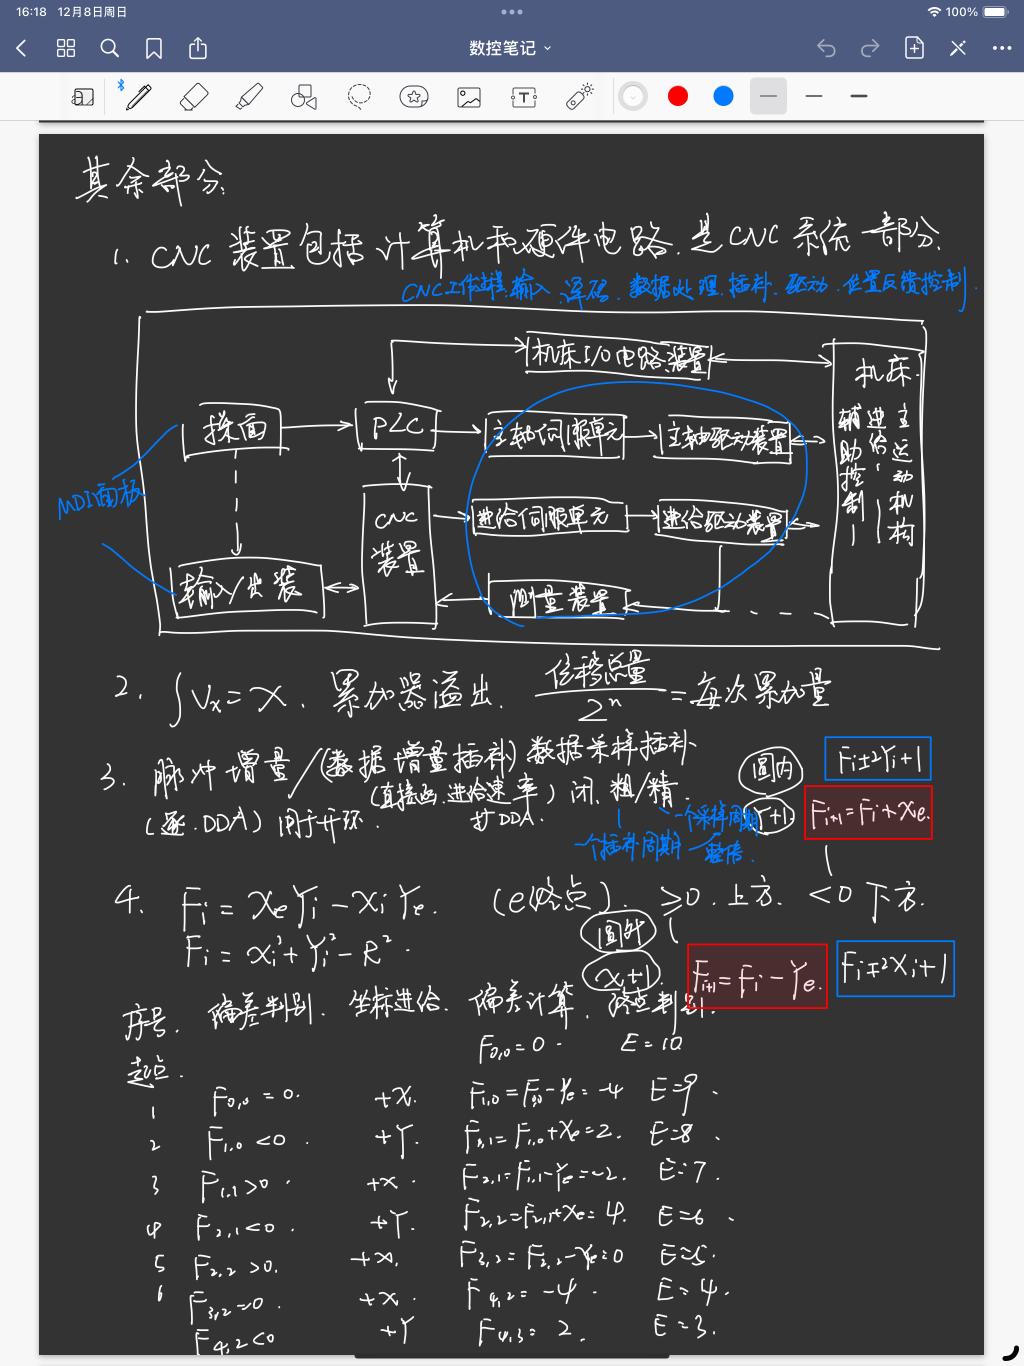 16:18 12月8日周日
100%
数控笔记
其余部分.
1. CNC 装置包括计算机和硬件电路. 是CNC系统一部分.
CNC工作过程.输入.译码.数据处理.插补.驱动.位置反馈控制.
机床I/O电路装置
机床.
操面
PLC
主轴伺服单元
主轴驱动装置
辅助控制
进给
主运动机构
MDI面板
CNC
装置
进给伺服单元
进给驱动装置
输入/出装
测量装置
2. ∫Vx=x. 累加器溢出. 位移总量/2ⁿ=每次累加量
3. 脉冲增量/(数据增量插补)数据采样插补
圆内
Fi±2Yi+1
(逐.DDA)用于开环.
(直接函.进给速率)闭.粗/精.
扩DDA.
一个采样周期
一个插补周期
整倍.
Y+1.
Fi+1=Fi+Xe.
4. Fi=XeYi-XiYe. (e终点). ≥0.上方. <0下方.
Fi=Xi²+Yi²-R².
圆外
X+1
Fi+1=Fi-Ye.
Fi∓2Xi+1
序号. 偏差判别. 坐标进给. 偏差计算. 终点判别.
起点. F0,0=0. E=10
1 F0,0=0. +X. F1,0=F0,0-Ye=-4 E=9.
2 F1,0<0. +Y. F1,1=F1,0+Xe=2. E=8.
3 F1,1>0. +x. F2,1=F1,1-Ye=-2. E=7.
4 F2,1<0. +Y. F2,2=F2,1+Xe=4. E=6.
5 F2,2>0. +x. F3,2=F2,2-Ye=0 E=5.
6 F3,2=0. +x. F4,2=-4. E=4.
F4,2<0 +Y F4,3=2. E=3.